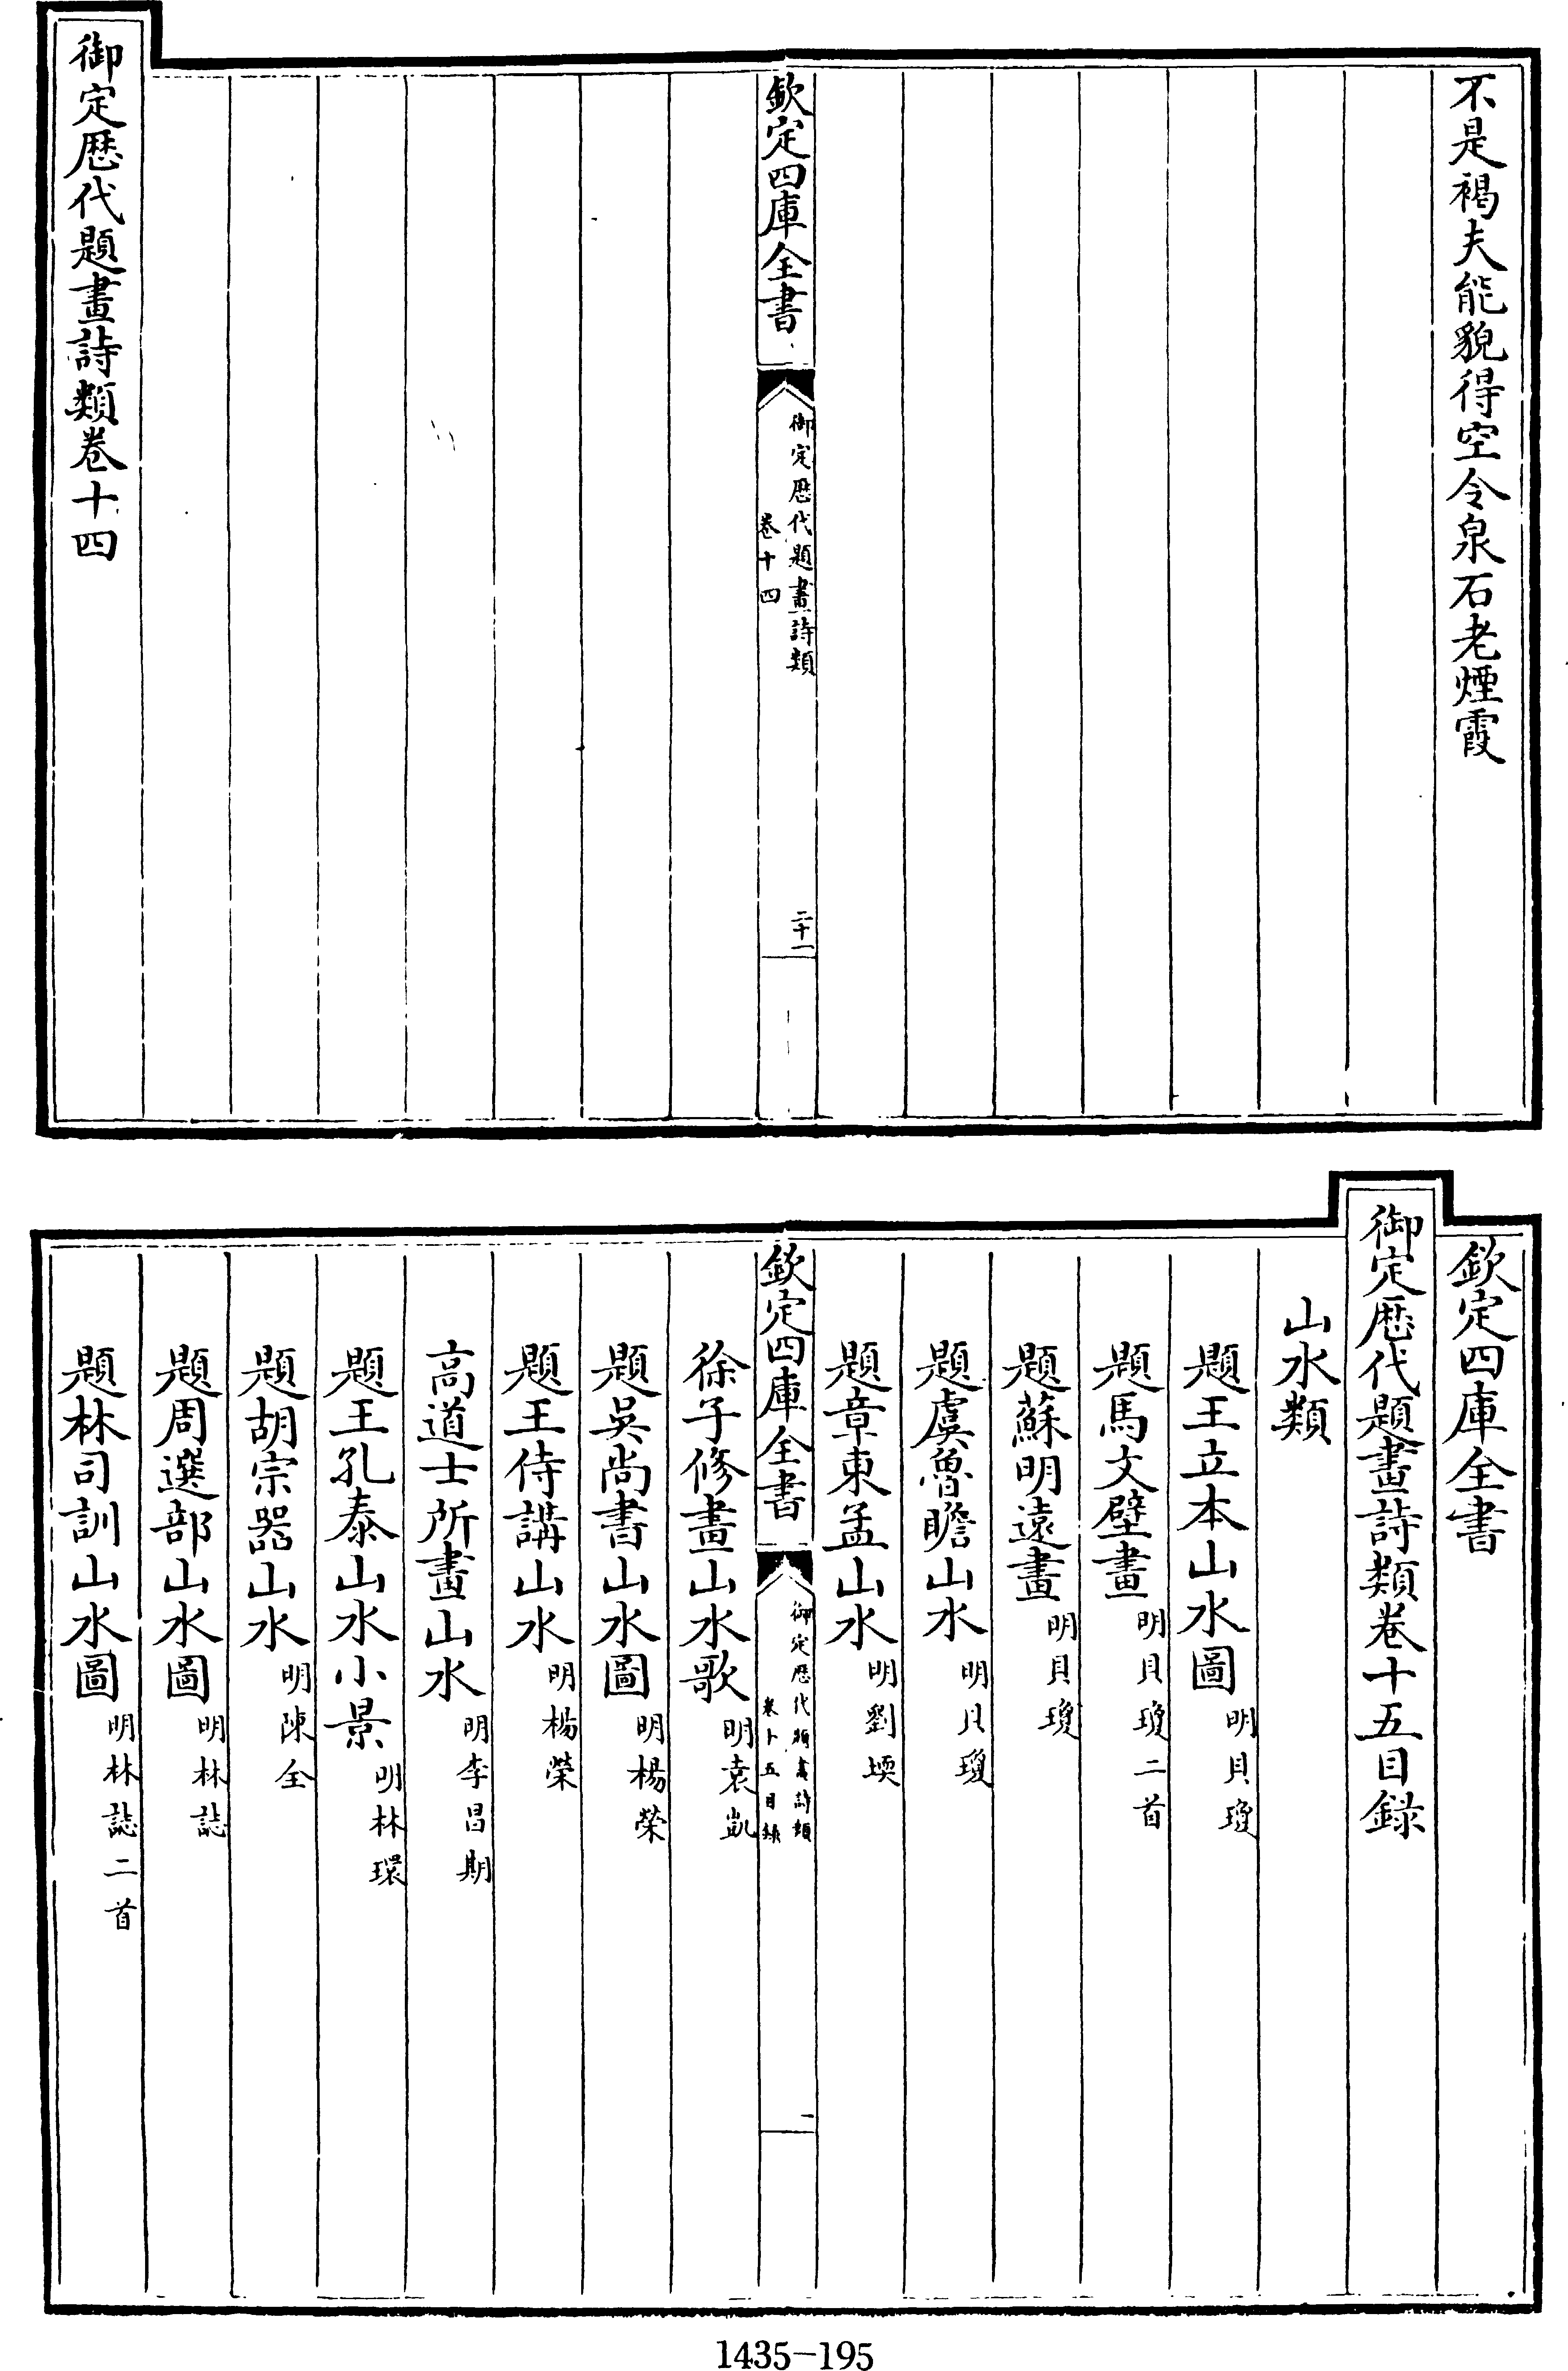 不是褐夫能貌得空令泉石老煙霞
欽定四庫全書
御定歷代題畫詩類
卷十四
二十一
御定歷代題畫詩類卷十四
欽定四庫全書
御定歷代題畫詩類卷十五目録
山水類
題王立本山水圖 明貝瓊
題馬文璧畫 明貝瓊二首
題蘇明遠畫 明貝瓊
題虞魯瞻山水 明貝瓊
題章東孟山水 明劉堧
欽定四庫全書
御定歷代題畫詩類
卷十五目録
一
徐子修畫山水歌 明袁凱
題吳尚書山水圖 明楊榮
題王侍講山水 明楊榮
高道士所畫山水 明李昌期
題王孔泰山水小景 明林環
題胡宗器山水 明陳全
題周選部山水圖 明林誌
題林司訓山水圖 明林誌二首
1435-195